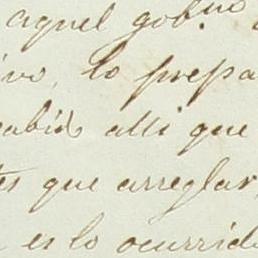 aquel gob.no
ivo, lo prepa
cabido alli que
tes que arreglar,
es lo ocurrido